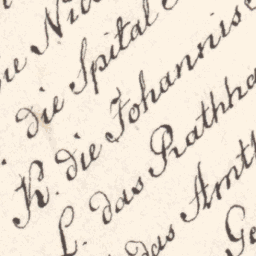 die Spital
K. die Johannis
L. das Rathha
das Amth
Ge